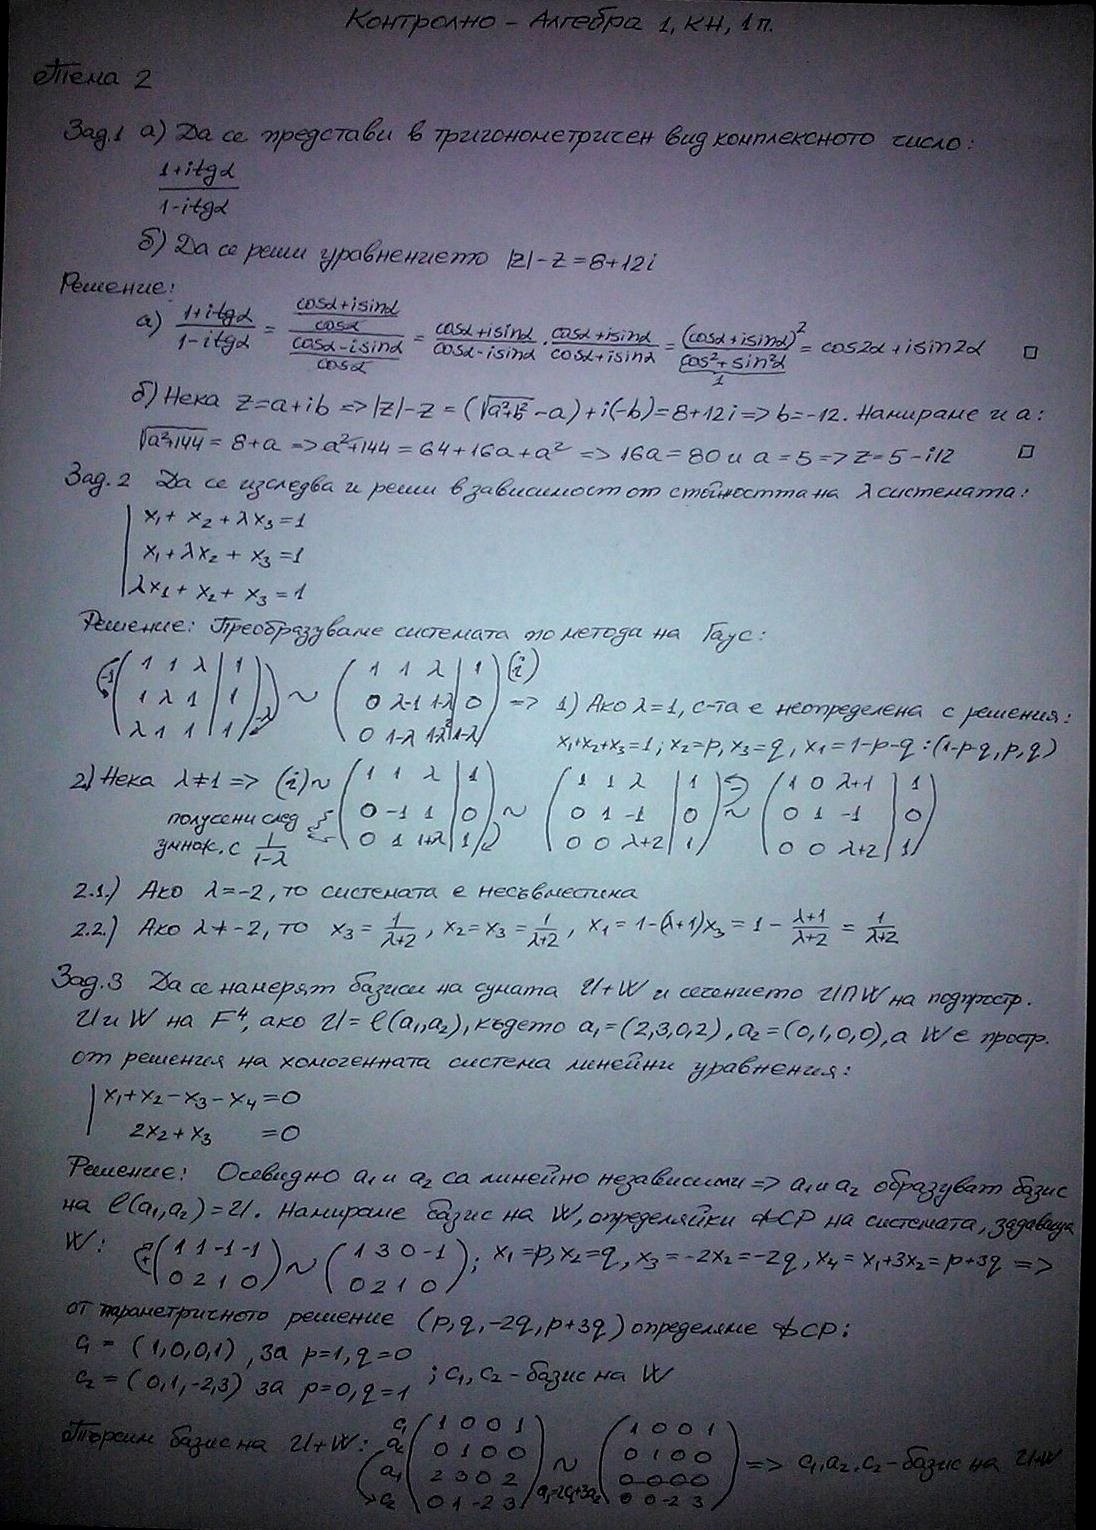 Контролно - Алгебра 1, КН, 1п.
Тема 2
Зад.1 а) Да се представи в тригонометричен вид комплексното число:
1+itgα
1-itgα
б) Да се реши уравнението |z|-z=8+12i
Решение:
а) (1+itgα)/(1-itgα) = ((cosα+isinα)/cosα)/((cosα-isinα)/cosα) = (cosα+isinα)/(cosα-isinα) . (cosα+isinα)/(cosα+isinα) = (cosα+isinα)²/(cos²+sin²α) = cos2α+isin2α □
1
б) Нека z=a+ib => |z|-z = (√a²+b² -a)+i(-b)=8+12i => b=-12. Намираме и a:
√a²+144 = 8+a => a²+144 = 64+16a+a² => 16a=80 и a=5 => z=5-i12 □
Зад.2 Да се изследва и реши в зависимост от стойността на λ системата:
x₁+ x₂+λx₃=1
x₁+λx₂+ x₃=1
λx₁+ x₂+ x₃=1
Решение: Преобразуваме системата по метода на Гаус:
(-1) (1 1 λ | 1) ~ (1 1 λ | 1) (i)
(1 λ 1 | 1) -λ (0 λ-1 1-λ | 0) => 1) Ако λ=1, с-та е неопределена с решения:
(λ 1 1 | 1) (0 1-λ 1-λ² | 1-λ) x₁+x₂+x₃=1; x₂=p, x₃=q, x₁=1-p-q : (1-p-q, p, q)
2) Нека λ≠1 => (i) ~ (1 1 λ | 1) (1 1 λ | 1) (1 0 λ+1 | 1)
получени след (0 -1 1 | 0) ~ (0 1 -1 | 0) ~ (0 1 -1 | 0)
умнож. с 1/(1-λ) (0 1 1+λ | 1) (0 0 λ+2 | 1) (0 0 λ+2 | 1)
2.1.) Ако λ=-2, то системата е несъвместима
2.2.) Ако λ≠-2, то x₃ = 1/(λ+2), x₂=x₃=1/(λ+2), x₁=1-(λ+1)x₃ = 1 - (λ+1)/(λ+2) = 1/(λ+2)
Зад.3 Да се намерят базиси на сумата U+W и сечението U∩W на подпростр.
U и W на F⁴, ако U=ℓ(a₁,a₂), където a₁=(2,3,0,2), a₂=(0,1,0,0), а W е простр.
от решения на хомогенната система линейни уравнения:
x₁+x₂-x₃-x₄=0
2x₂+x₃ =0
Решение: Очевидно a₁ и a₂ са линейно независими => a₁ и a₂ образуват базис
на ℓ(a₁,a₂)=U. Намираме базис на W, определяйки ФСР на системата, задаваща
W: (1 1 -1 -1) ~ (1 3 0 -1); x₁=p, x₂=q, x₃=-2x₂=-2q, x₄=x₁+3x₂=p+3q =>
(0 2 1 0) (0 2 1 0)
от параметричното решение (p,q,-2q,p+3q) определяме ФСР:
c₁ = (1,0,0,1), за p=1,q=0
c₂ = (0,1,-2,3) за p=0,q=1 ; c₁,c₂ - базис на W
Търсим базис на U+W: c₁ (1 0 0 1) (1 0 0 1)
a₂ (0 1 0 0) ~ (0 1 0 0)
a₁ (2 3 0 2) a₁=2c₁+3a₂ (0 0 0 0) => c₁,a₂,c₂ - базис на U+W
c₂ (0 1 -2 3) (0 0 -2 3)